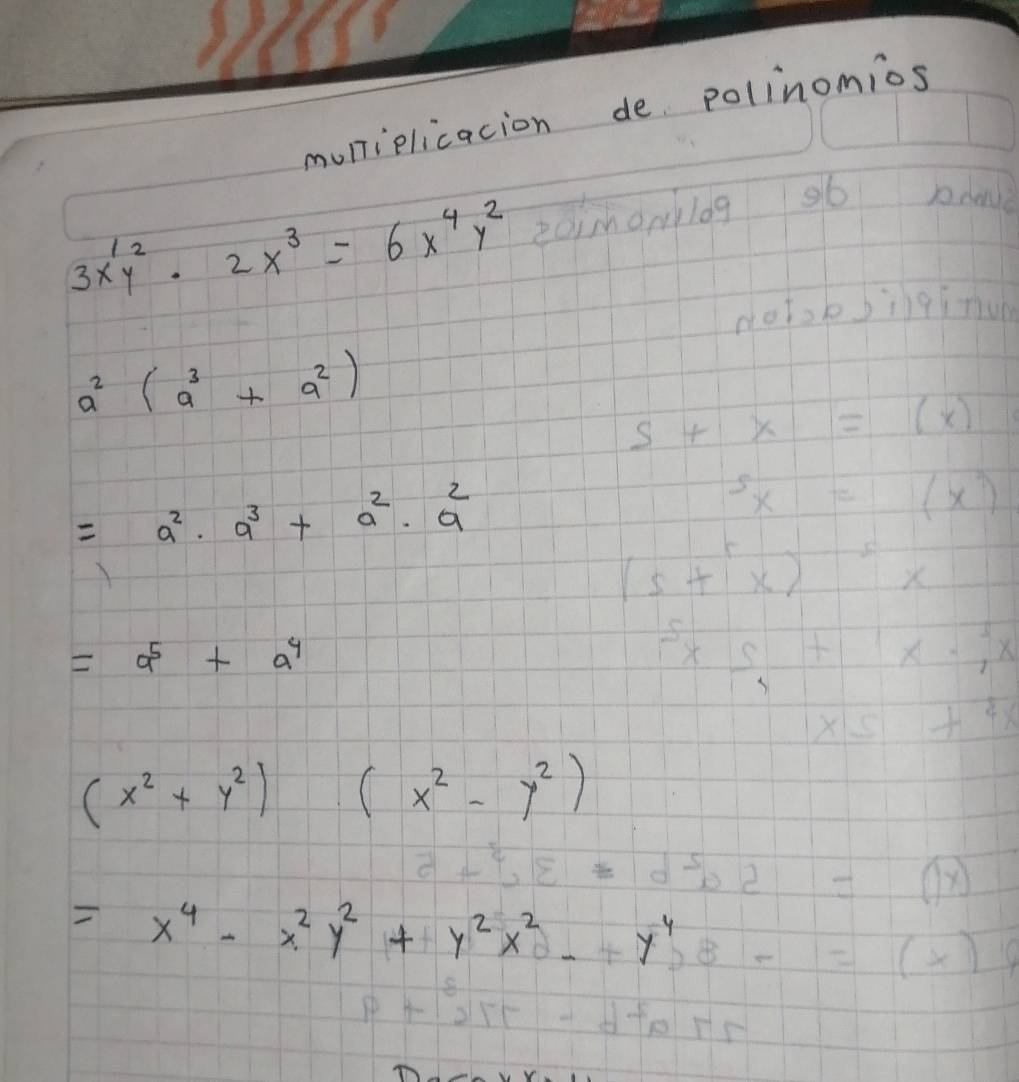 multiplicacion de polinomios
3x¹y² · 2x³ = 6x⁴y²
a² (a³ + a²)
= a² · a³ + a² · a²
= a⁵ + a⁴
(x² + y²) (x² - y²)
= x⁴ - x²y² + y²x² - y⁴